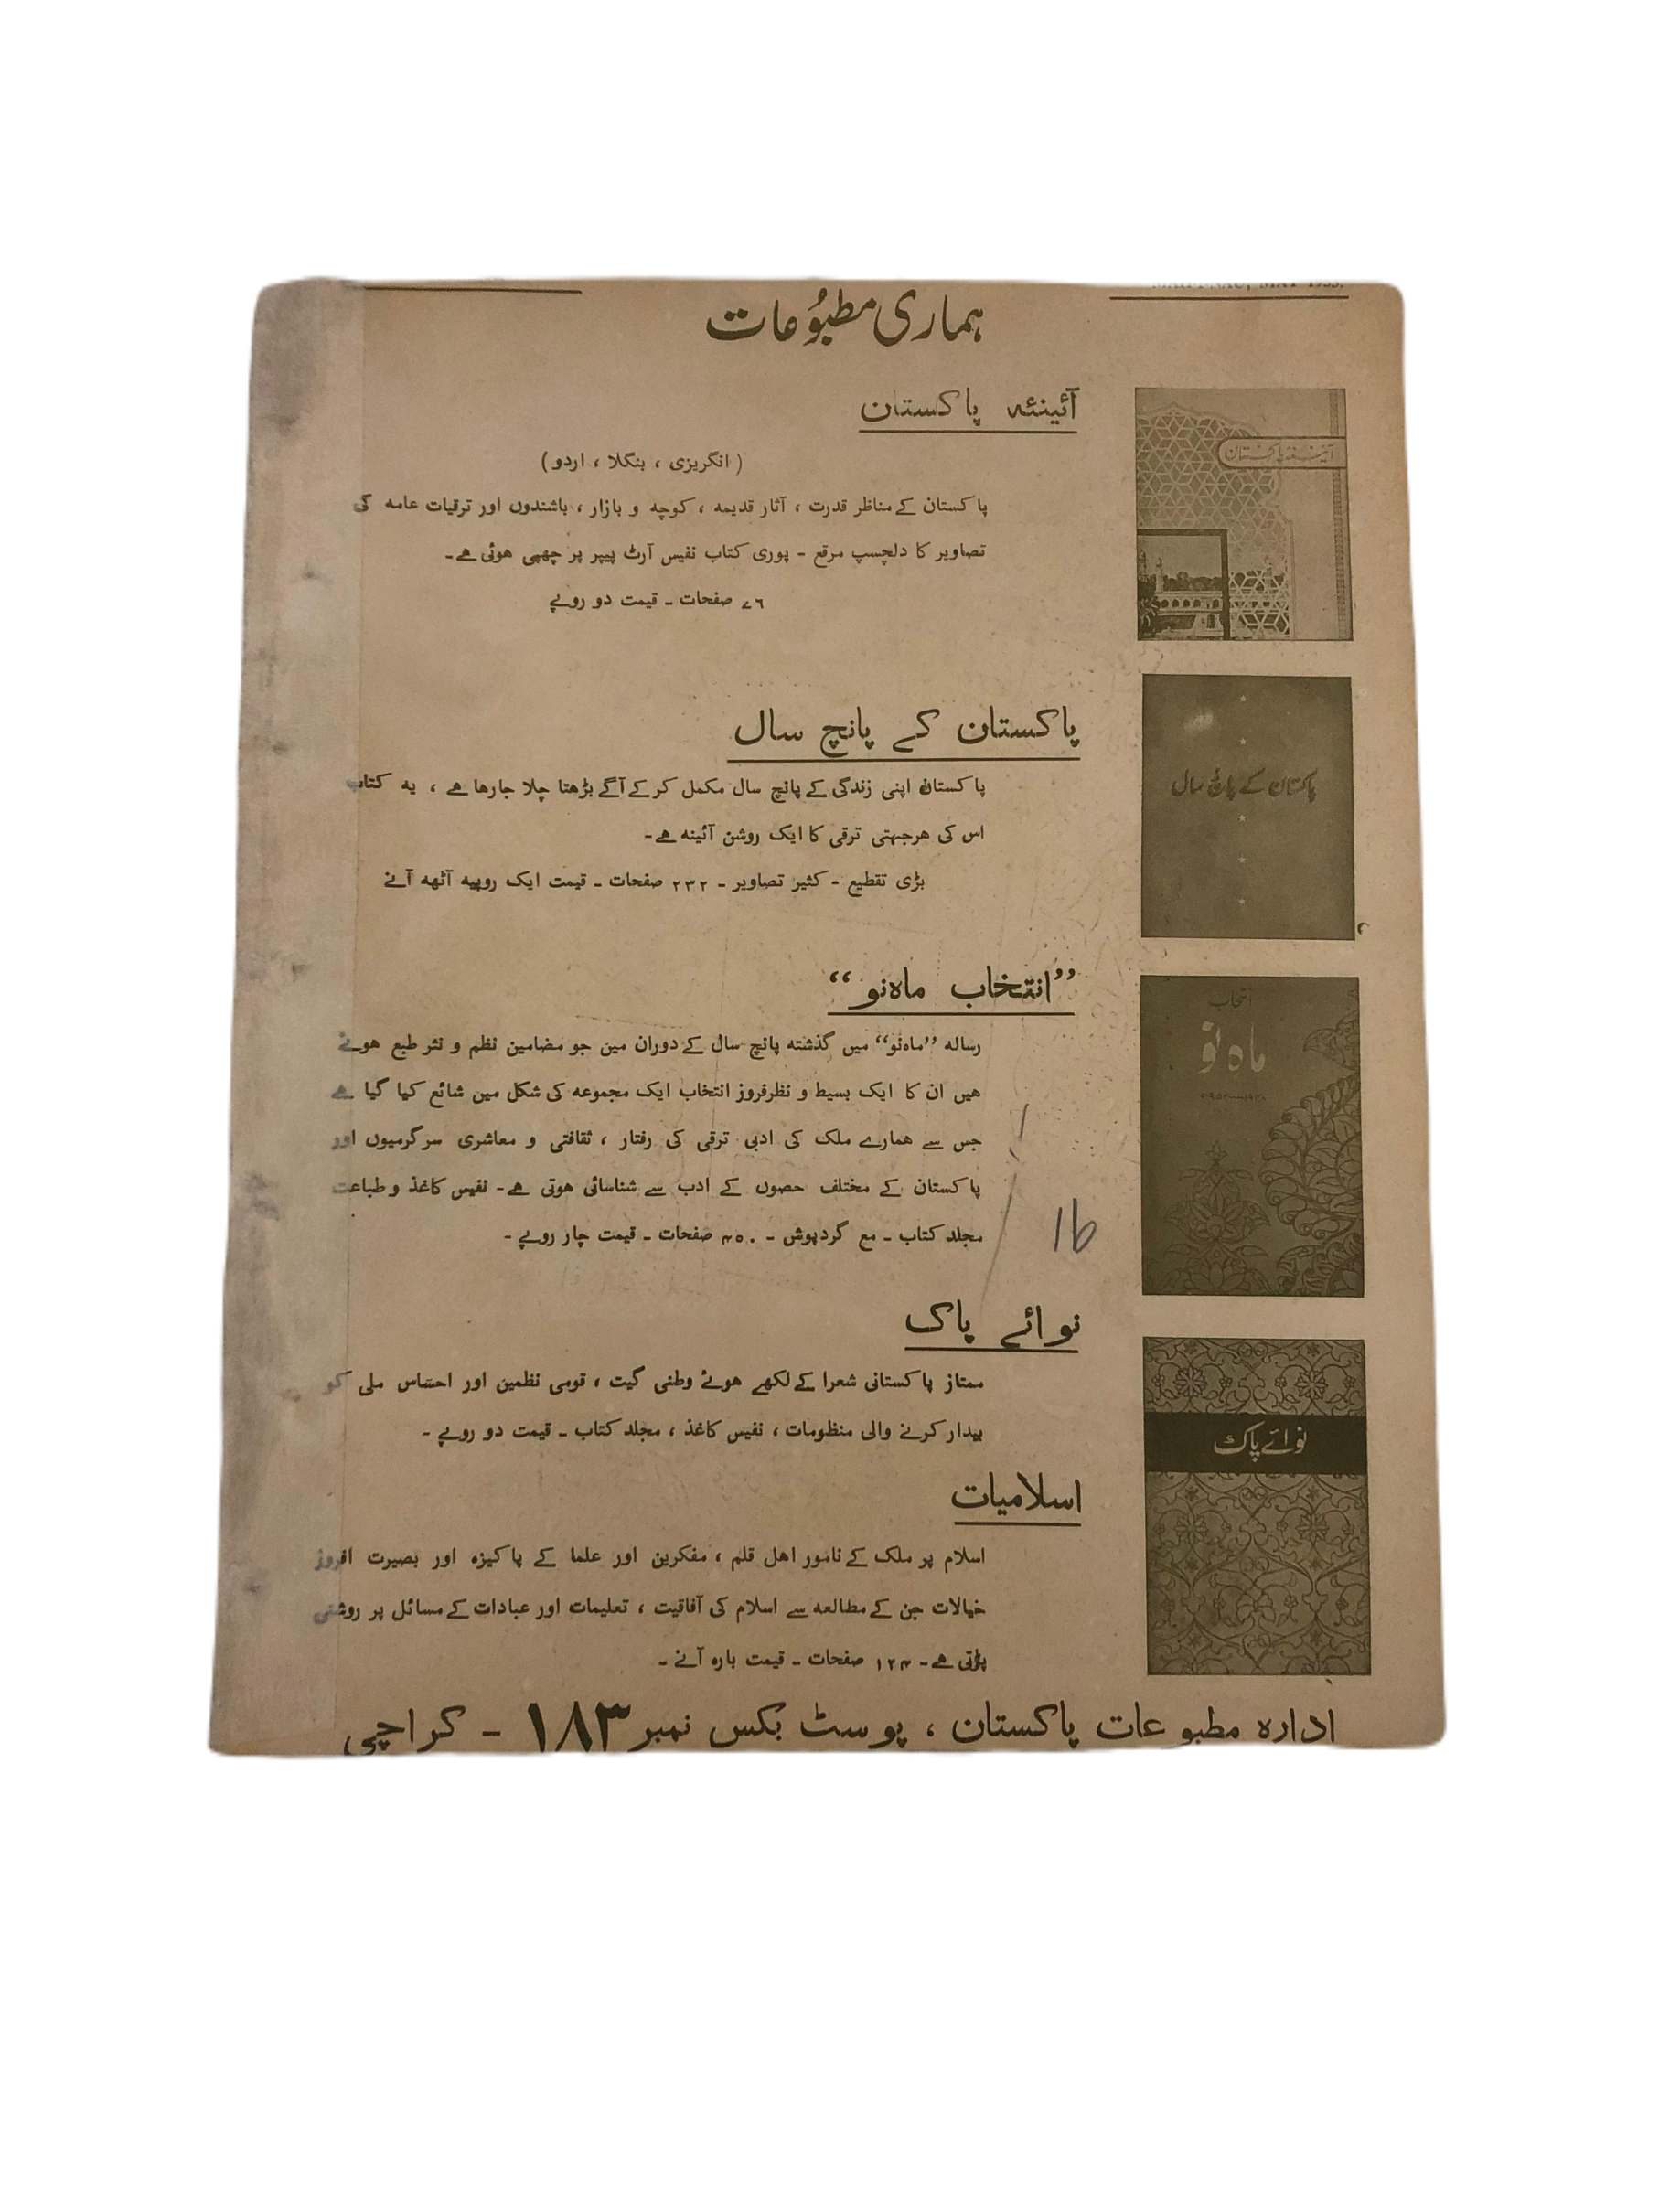 ہماری مطبُوعات
آئینۂ پاکستان
(انگریزی ، بنگلا ، اردو)
پاکستان کے مناظر قدرت ، آثار قدیمہ ، کوچہ و بازار ، باشندوں اور ترقیات عامہ کی
تصاویر کا دلچسپ مرقع - پوری کتاب نفیس آرٹ پیپر پر چھپی ھوئی ہے۔
۷۶ صفحات - قیمت دو روپے
آئینۂ پاکستان
پاکستان کے پانچ سال
پاکستان اپنی زندگی کے پانچ سال مکمل کر کے آگے بڑھتا چلا جارھا ہے ، یہ کتاب
اس کی ھرجہتی ترقی کا ایک روشن آئینہ ہے۔
بڑی تقطیع - کثیر تصاویر - ۲۳۲ صفحات - قیمت ایک روپیہ آٹھ آنے
پاکستان کے پانچ سال
”انتخاب ماہ نو“
رسالہ ”ماہ نو“ میں گذشتہ پانچ سال کے دوران میں جو مضامین نظم و نثر طبع ھوئے
ھیں ان کا ایک بسیط و نظرفروز انتخاب ایک مجموعہ کی شکل میں شائع کیا گیا ہے
جس سے ھمارے ملک کی ادبی ترقی کی رفتار ، ثقافتی و معاشری سرگرمیوں اور
پاکستان کے مختلف حصوں کے ادب سے شناسائی ھوتی ہے۔ نفیس کاغذ و طباعت
مجلد کتاب - مع گردپوش - ۴۵۰ صفحات - قیمت چار روپے -
16
انتخاب
ماہ نو
نوائے پاک
ممتاز پاکستانی شعرا کے لکھے ھوئے وطنی گیت ، قومی نظمیں اور احساس ملی کو
بیدار کرنے والی منظومات ، نفیس کاغذ ، مجلد کتاب - قیمت دو روپے -
نوائے پاک
اسلامیات
اسلام پر ملک کے نامور اھل قلم ، مفکرین اور علما کے پاکیزہ اور بصیرت افروز
خیالات جن کے مطالعہ سے اسلام کی آفاقیت ، تعلیمات اور عبادات کے مسائل پر روشنی
پڑتی ہے۔ ۱۲۴ صفحات - قیمت بارہ آنے -
ادارہ مطبوعات پاکستان ، پوسٹ بکس نمبر ۱۸۳ - کراچی